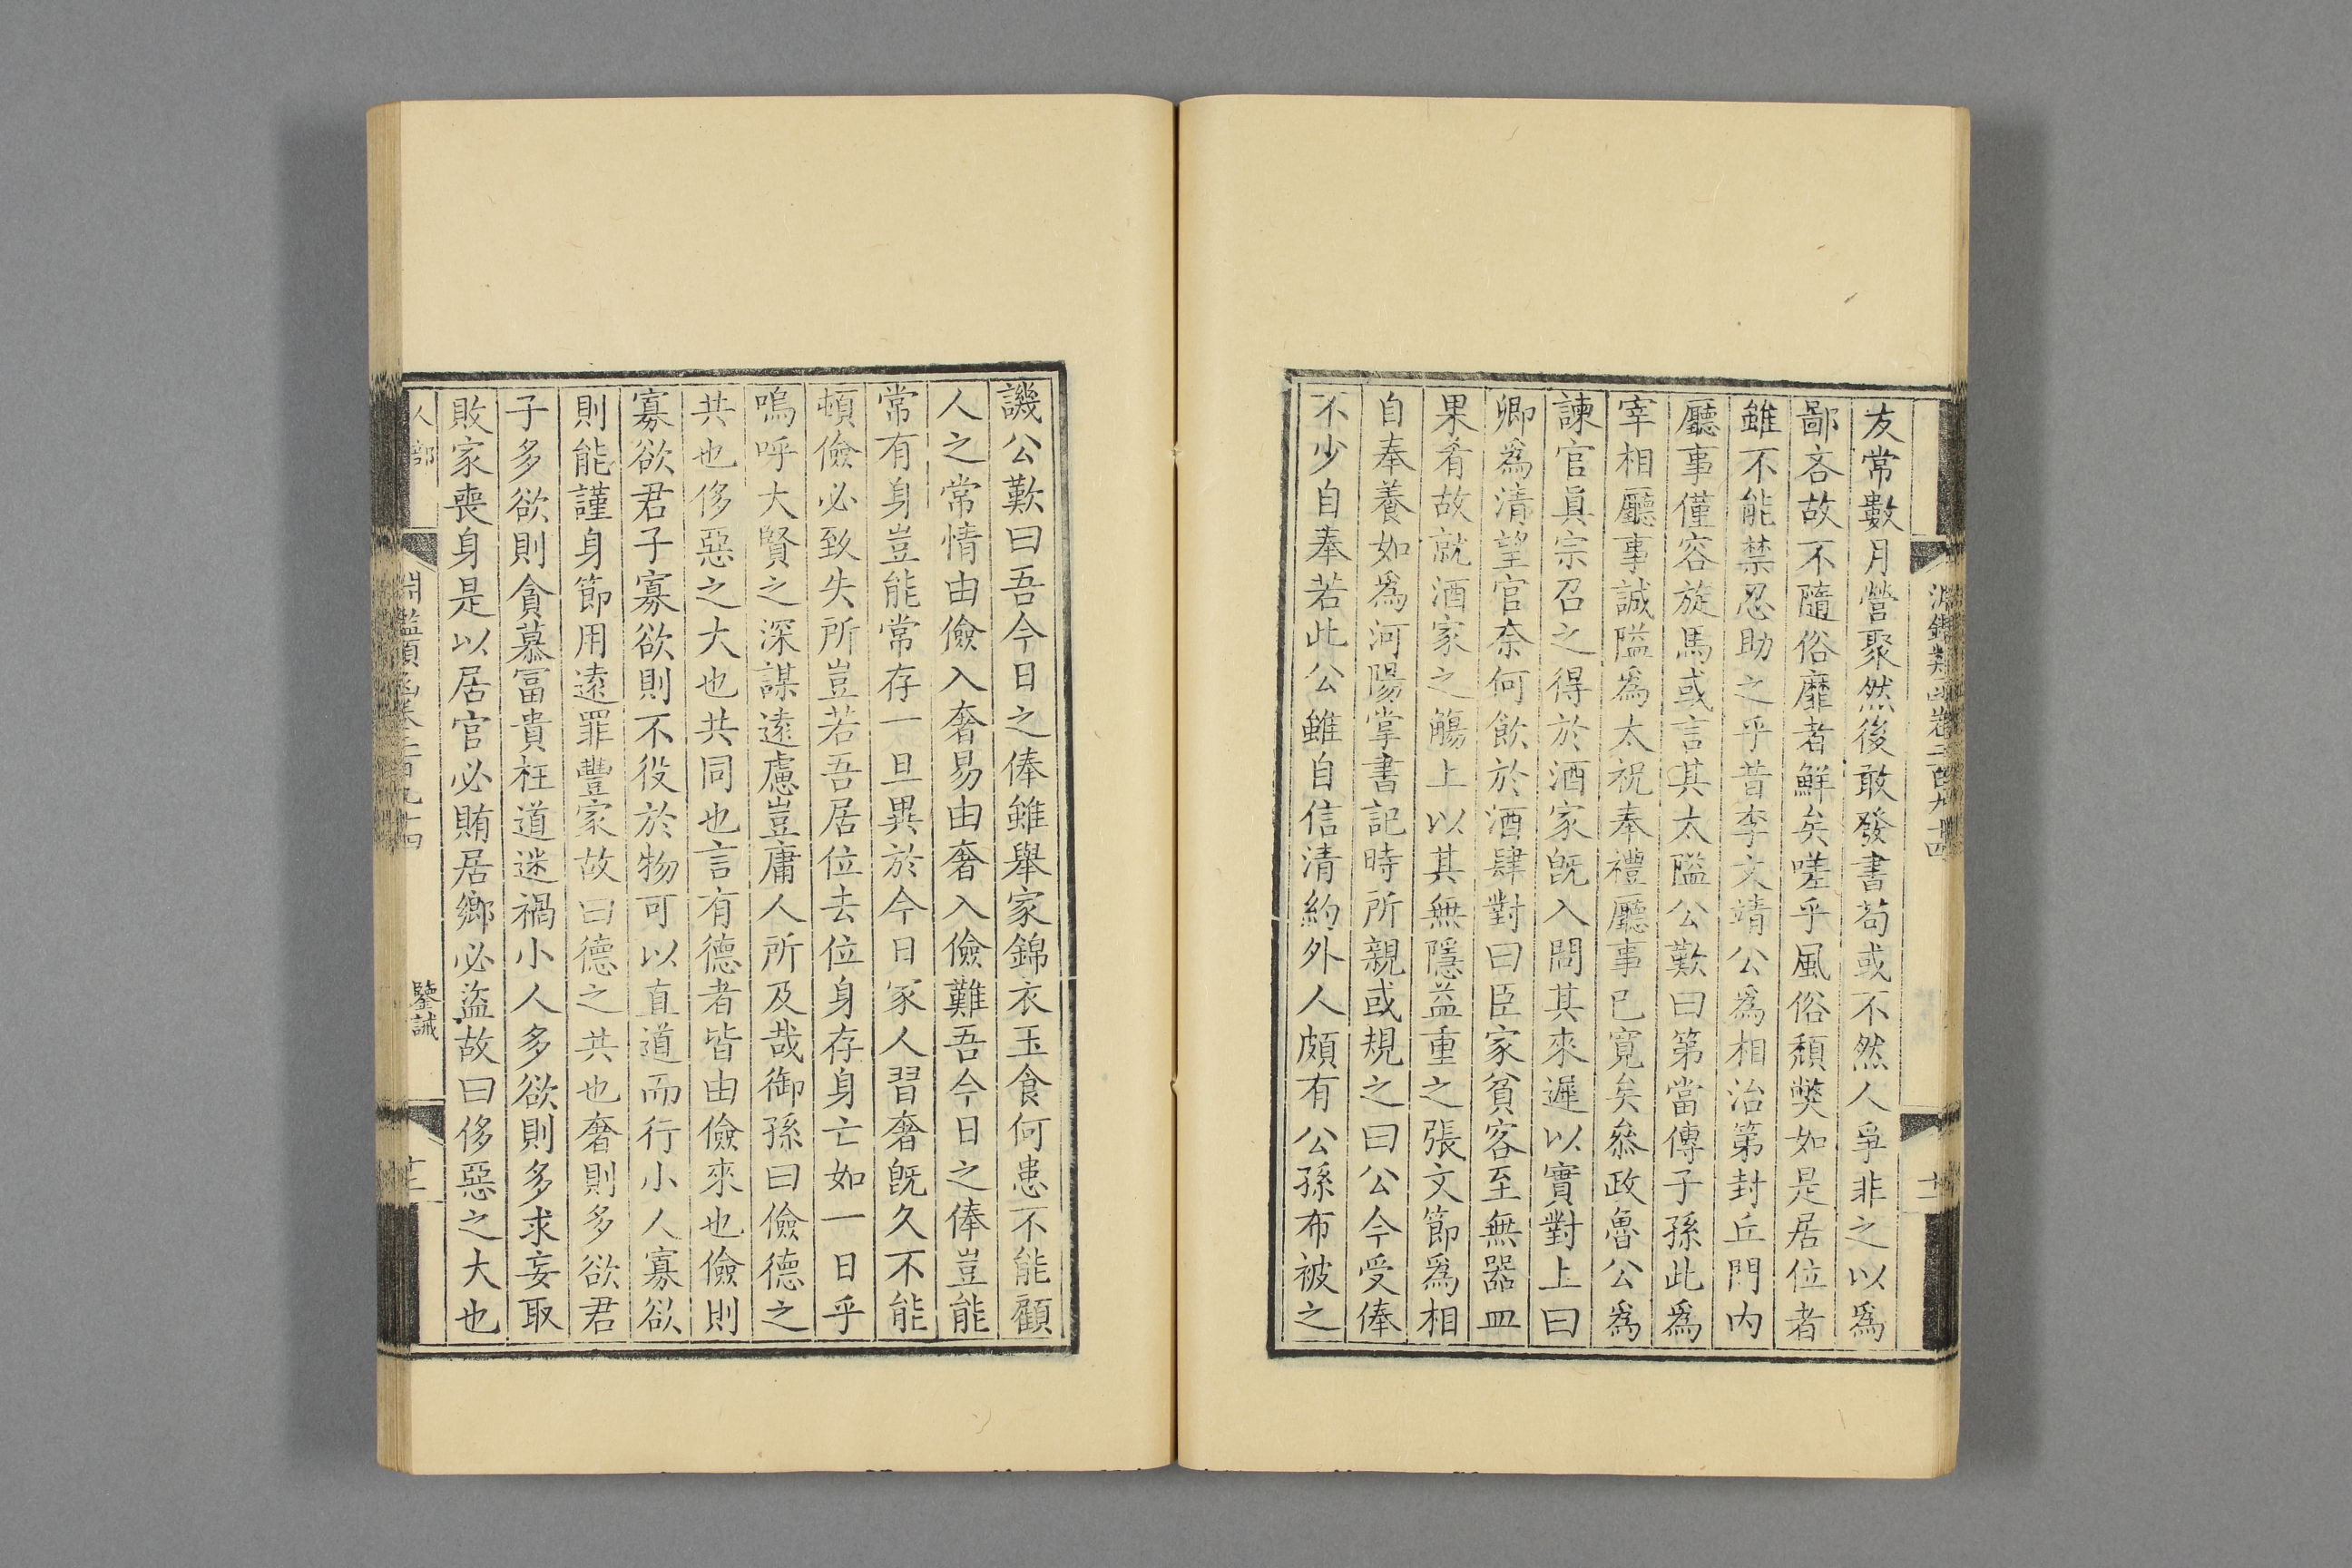 淵鑑類函卷二百九十四
十二
友常數月營聚然後敢發書苟或不然人爭非之以爲
鄙吝故不隨俗靡者鮮矣嗟乎風俗頹弊如是居位者
雖不能禁忍助之乎昔李文靖公爲相治第封丘門内
廳事僅容旋馬或言其太隘公歎曰第當傳子孫此爲
宰相廳事誠隘爲太祝奉禮廳事已寬矣叅政魯公爲
諫官眞宗召之得於酒家旣入問其來遲以實對上曰
卿爲清望官奈何飲於酒肆對曰臣家貧客至無器皿
果肴故就酒家之觴上以其無隱益重之張文節爲相
自奉養如爲河陽掌書記時所親或規之曰公今受俸
不少自奉若此公雖自信清約外人頗有公孫布被之
譏公歎曰吾今日之俸雖舉家錦衣玉食何患不能顧
人之常情由儉入奢易由奢入儉難吾今日之俸豈能
常有身豈能常存一旦異於今日家人習奢旣久不能
頓儉必致失所豈若吾居位去位身存身亡如一日乎
嗚呼大賢之深謀遠慮豈庸人所及哉御孫曰儉德之
共也侈惡之大也共同也言有德者皆由儉來也儉則
寡欲君子寡欲則不役於物可以直道而行小人寡欲
則能謹身節用遠罪豐家故曰德之共也奢則多欲君
子多欲則貪慕冨貴枉道迷禍小人多欲則多求妄取
敗家喪身是以居官必賄居鄉必盜故曰侈惡之大也
人部
淵鑑類函卷二百九十四
鑒誡